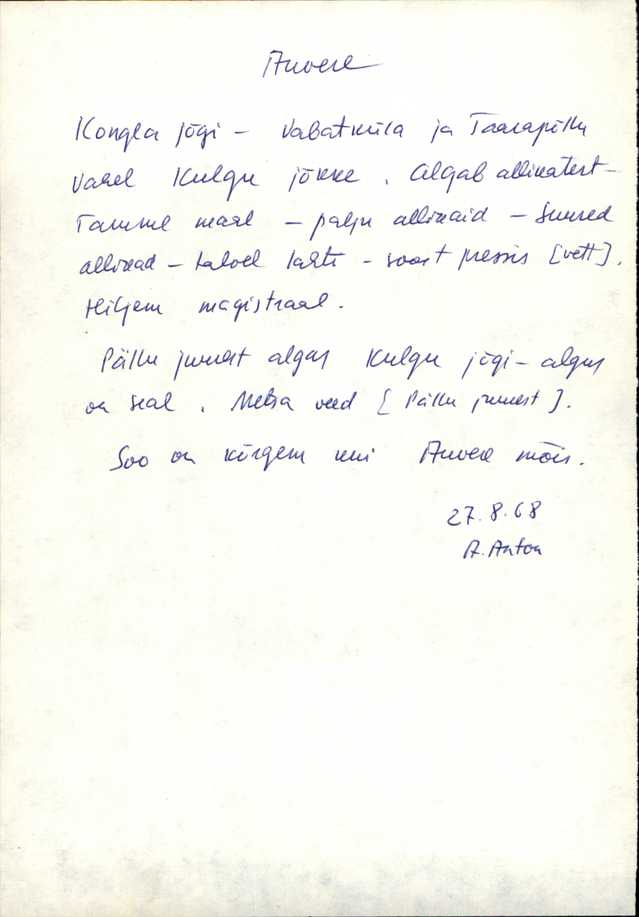 Auvere
Kongla jõgi – Vabatküla ja Taarapõllu
vahel Kulgu jõkke. Algab allikatest –
Tammel maal – palju allikaid – Suured
allikad – talvel lahti – soost pressis [vett].
Hiljem magistraal.
Pälku juurest algas Kulgu jõgi – algus
on seal. Metsa veed [Pälku juurest].
Soo on kõrgem kui Auvere mõis.
27.8.68
A. Anton